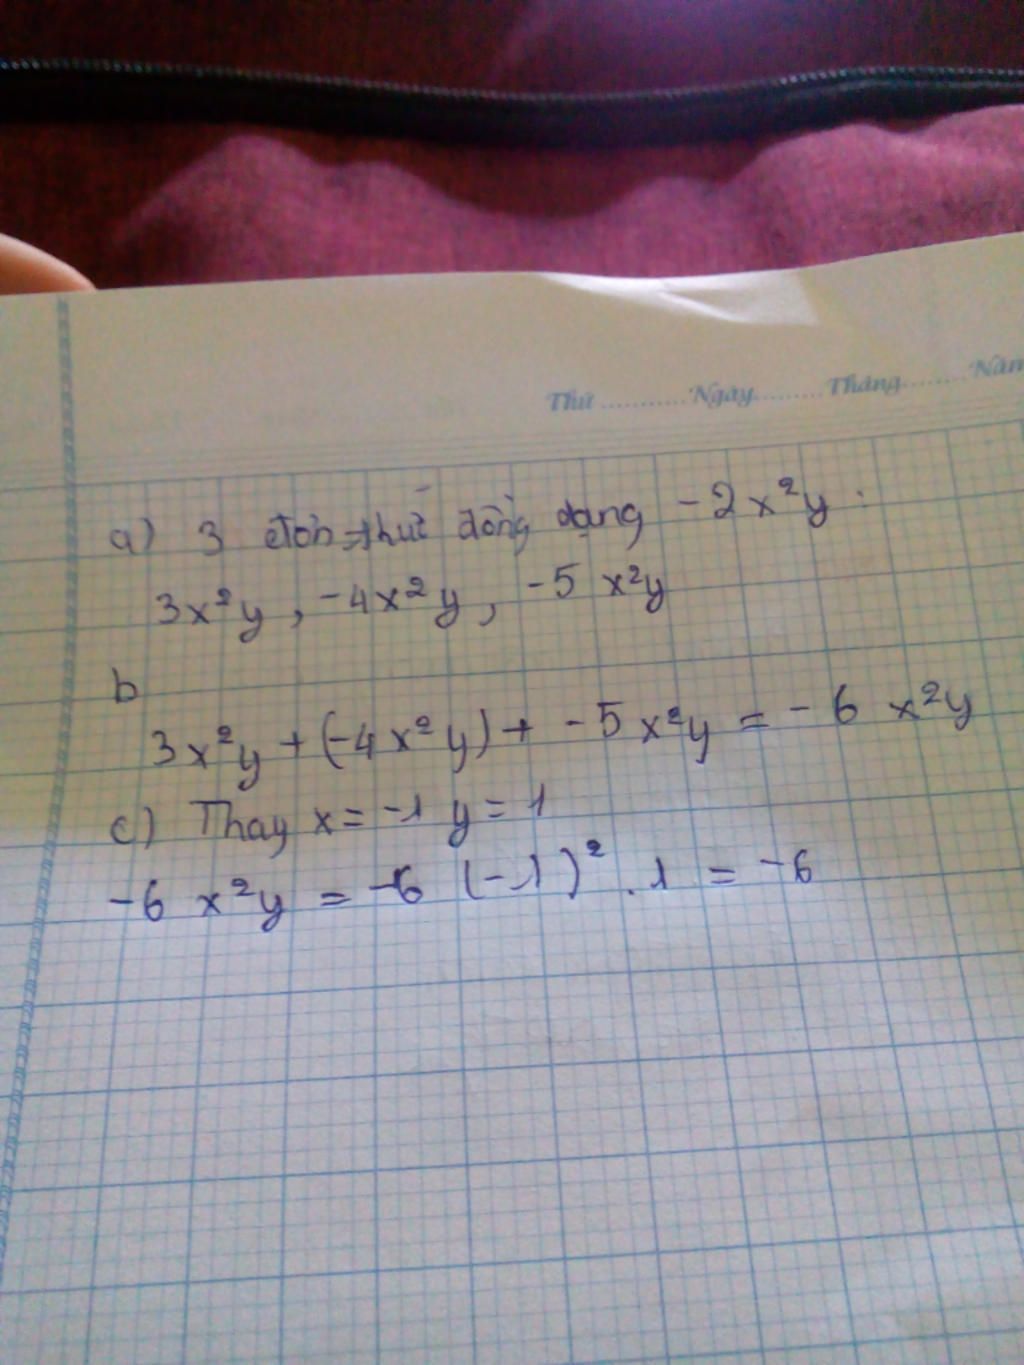 Thứ ........... Ngày ......... Tháng ........ Năm
a) 3 đơn thức đồng dạng -2x²y :
3x²y , -4x²y , -5 x²y
b
3x²y + (-4x²y) + -5x²y = -6 x²y
c) Thay x = -1 y = 1
-6 x²y = -6 (-1)² . 1 = -6